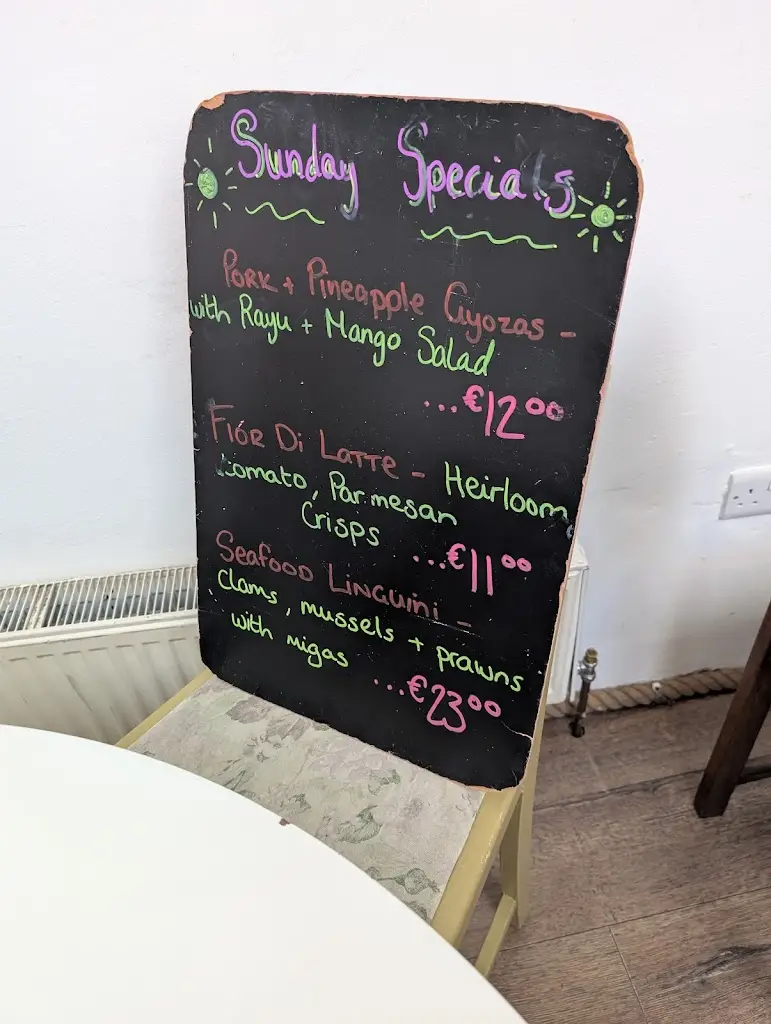 Sunday Specials
Pork + Pineapple Gyozas -
with Rayu + Mango Salad
...€12⁰⁰
Fior Di Latte - Heirloom
tomato, Parmesan
Crisps ...€11⁰⁰
Seafood Linguini -
clams, mussels + prawns
with migas ...€23⁰⁰